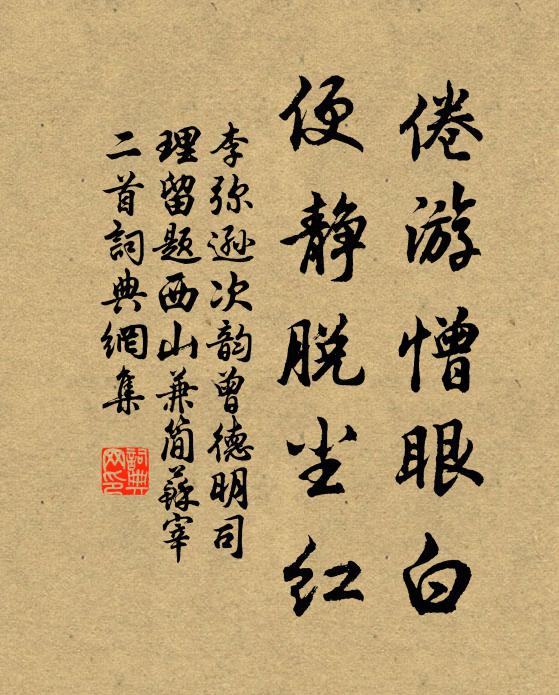 倦游憎眼白
便静脱尘红
李弥逊次韵曾德明司
理留题西山兼简苏宰
二首詞典網集
詞典网印